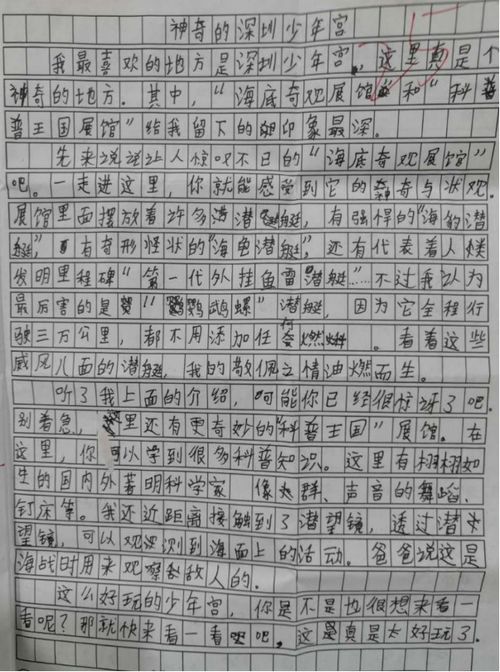 神奇的深圳少年宫
我最喜欢的地方是深圳少年宫,这里真是个
神奇的地方.其中,“海底奇观展馆”和“科普
普王国展馆”给我留下的印象最深。
先来说说让人惊叹不已的“海底奇观展馆”
吧。一走进这里,你就能感受到它的神奇与状观.
展馆里面摆放着许多潜艇,有强悍的“海豹潜
艇”,有奇形怪状的“海龟潜艇”,还有代表着人类
发明里程碑“第一代外挂鱼雷潜艇”……不过我认为
最厉害的是“鹦鹉螺”潜艇,因为它全程行
驶三万公里,都不用添加任何燃料。看着这些
威风八面的潜艇,我的敬佩之情油燃而生。
听了我上面的介绍,可能你已经很惊讶了吧.
别着急,这里还有更奇妙的“科普王国”展馆.在
这里,你可以学到很多科普知识。这里有栩栩如
生的国内外著明科学家像群、声音的舞蹈、
钉床等。我还近距离接触到了潜望镜,透过潜
望镜,可以观测到海面上的活动。爸爸说这是
海战时用来观察敌人的.
这么好玩的少年宫,你是不是也很想来看一
看呢?那就快来看一看吧.这里真是太好玩了.